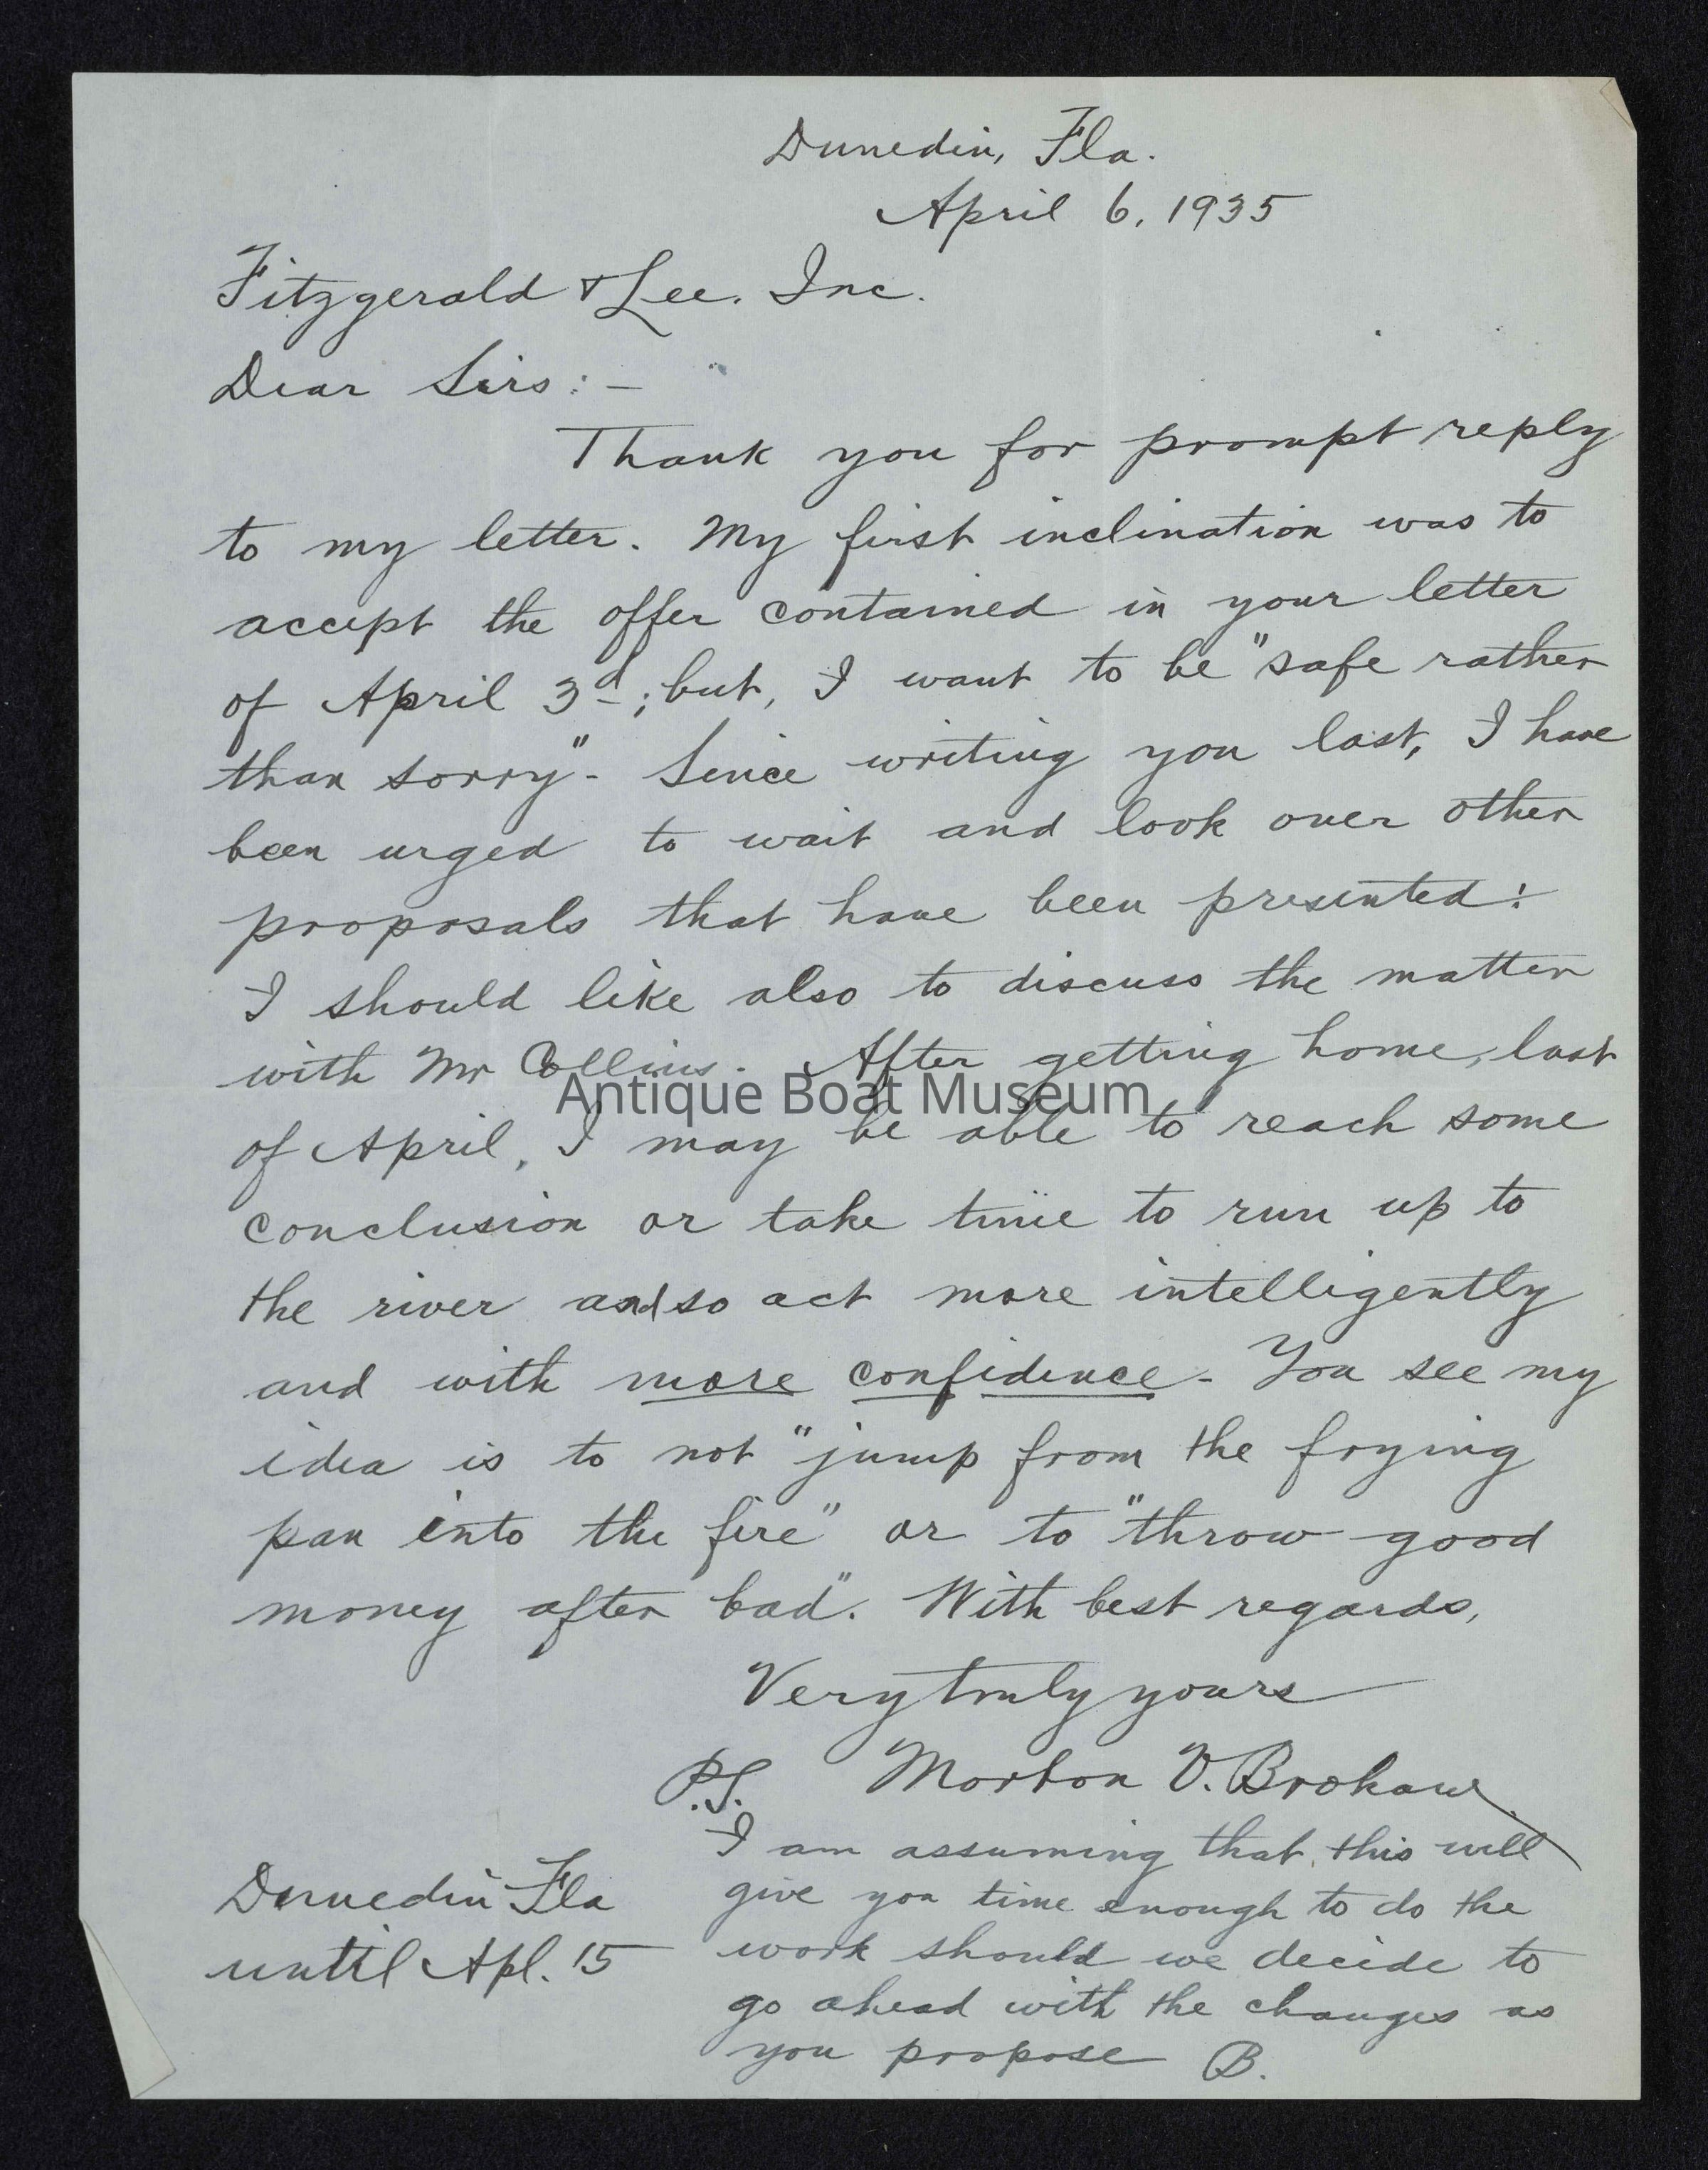 Dunedin, Fla.
April 6, 1935
Fitzgerald & Lee. Inc.
Dear Sirs:-
Thank you for prompt reply
to my letter. My first inclination was to
accept the offer contained in your letter
of April 3d; but, I want to be "safe rather
than sorry"- Since writing you last, I have
been urged to wait and look over other
proposals that have been presented:
I should like also to discuss the matter
with Mr Collins. After getting home, last
Antique Boat Museum
of April, I may be able to reach some
conclusion or take time to run up to
the river and so act more intelligently
and with more confidence- You see my
idea is to not "jump from the frying
pan into the fire" or to "throw good
money after bad". With best regards,
Very truly yours
Morton V. Brokaw
P.S.
I am assuming that this will
give you time enough to do the
work should we decide to
go ahead with the changes as
you propose B.
Dunedin Fla
until Apl. 15